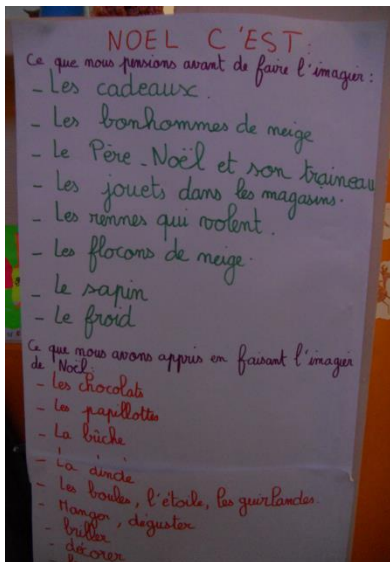 NOEL C'EST:
Ce que nous pensions avant de faire l'imagier :
- Les cadeaux.
- Les bonhommes de neige
- Le Père-Noël et son traineau
- Les jouets dans les magasins.
- Les rennes qui volent.
- Les flocons de neige.
- Le sapin
- Le froid
Ce que nous avons appris en faisant l'imagier
de Noël.
- Les chocolats
- Les papillottes
- La bûche
- La dinde
- Les boules, l'étoile, les guirlandes.
- Manger, déguster
- briller
- décorer